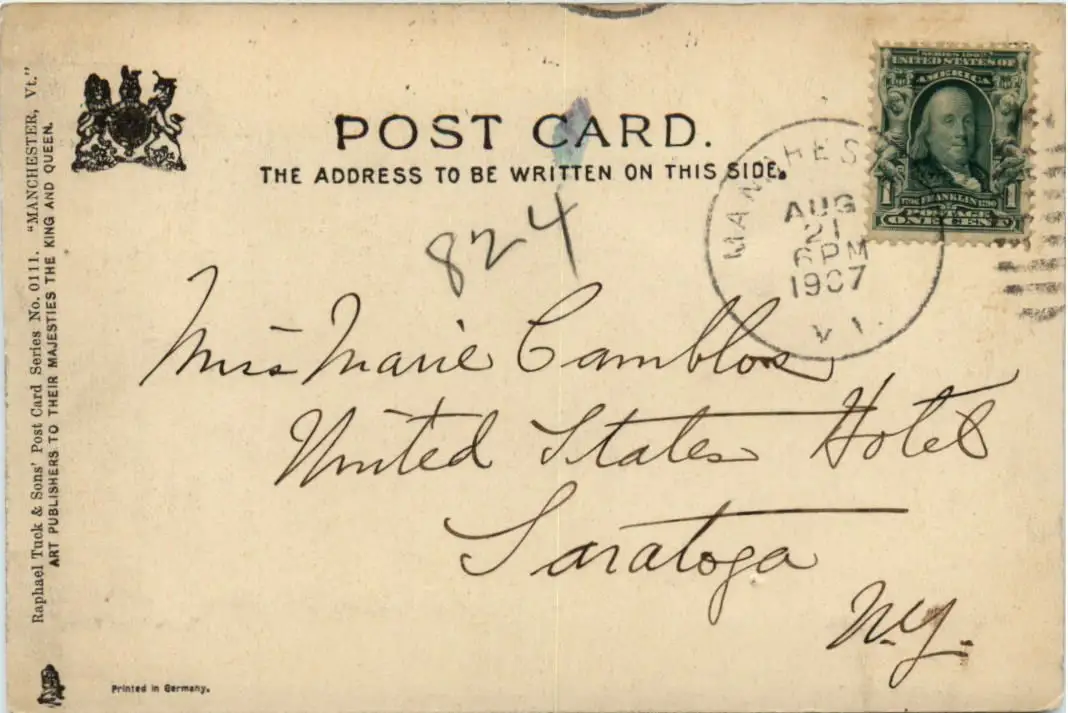 POST CARD.
THE ADDRESS TO BE WRITTEN ON THIS SIDE.
SERIES 1902
UNITED STATES OF
AMERICA
1 1790 FRANKLIN 1790 1
POSTAGE
ONE CENT
MANCHES
AUG
21
6 PM
1907
VT.
824
Miss Marie Camblos
United States Hotel
Saratoga
N.Y.
Raphael Tuck & Sons' Post Card Series No. 0111. "MANCHESTER, Vt."
ART PUBLISHERS TO THEIR MAJESTIES THE KING AND QUEEN.
Printed in Germany.